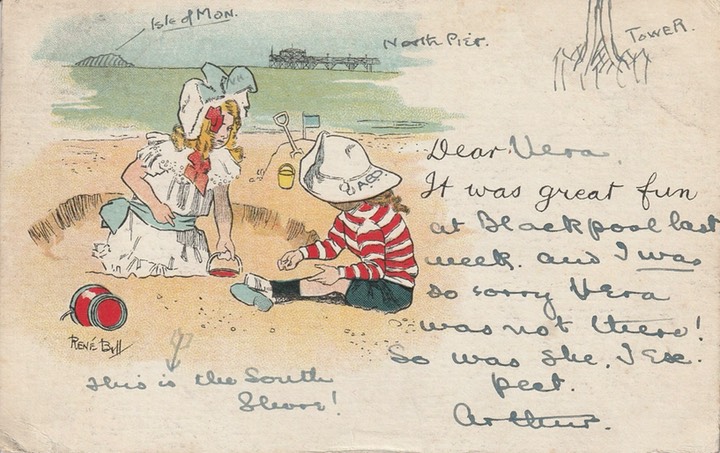 Isle of Mon.
North Pier.
Tower.
Dear Vera,
It was great fun
at Blackpool last
week. and I was
so sorry Vera
was not there!
So was she, I Ex-
pect.
Arthur.
RENÉ BULL
This is the South
Shore!